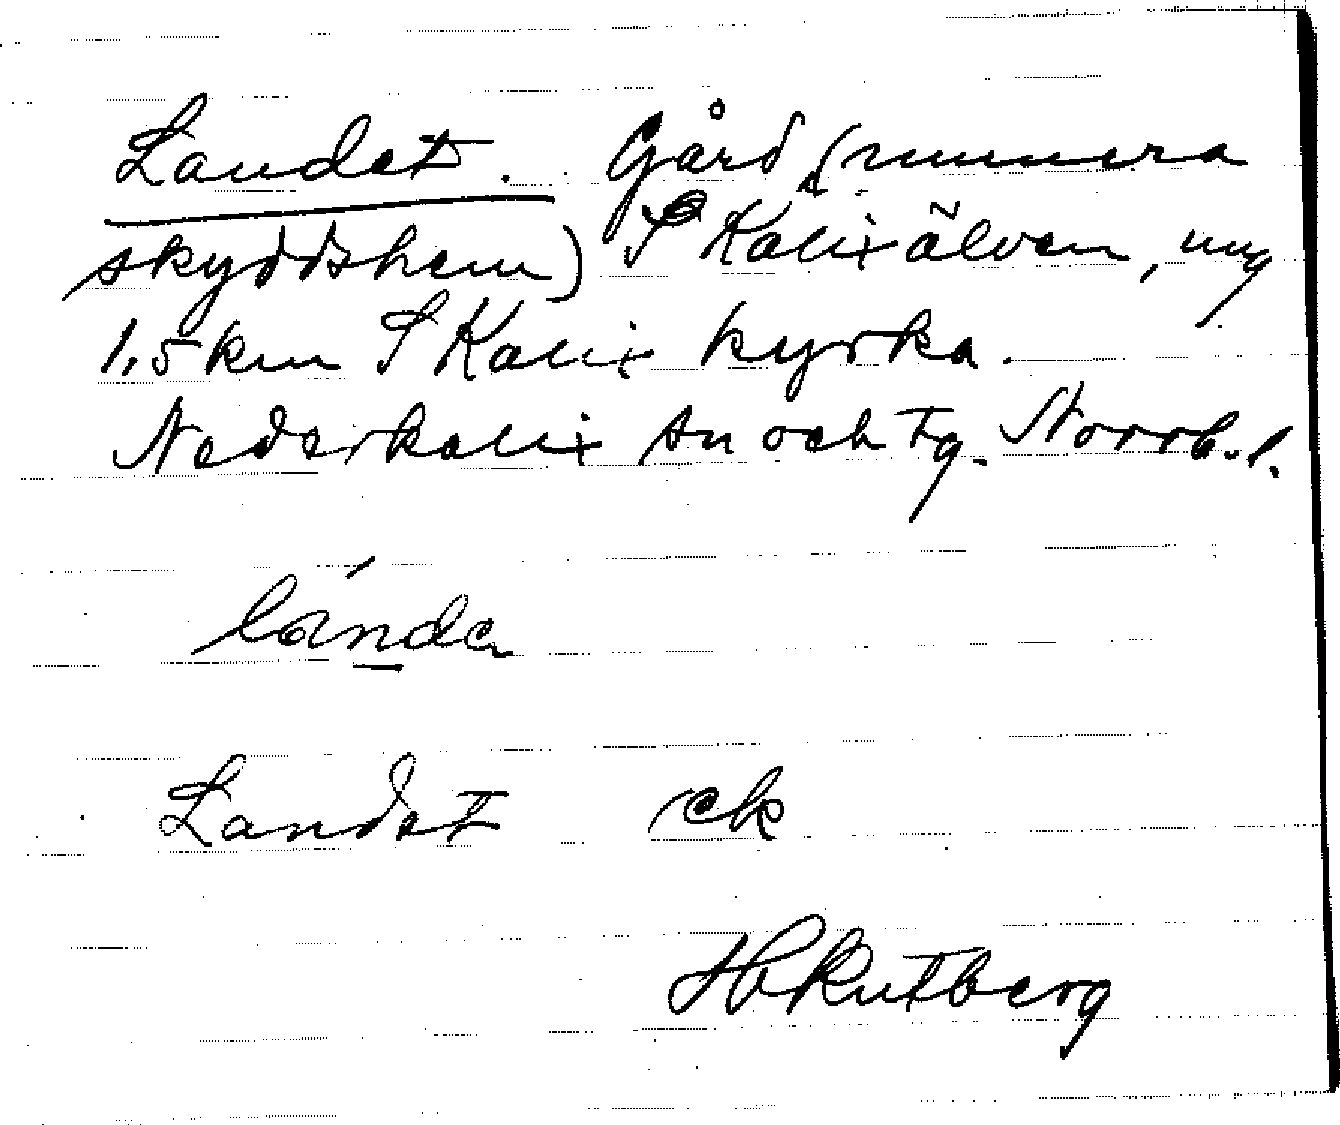 Landet. Gård (numera
skyddshem) S Kalixälven, ung
1,5 km S Kalix kyrka.
Nederkalix sn och tg. Norrb. l.
lánda
Landet ek
HVRutberg